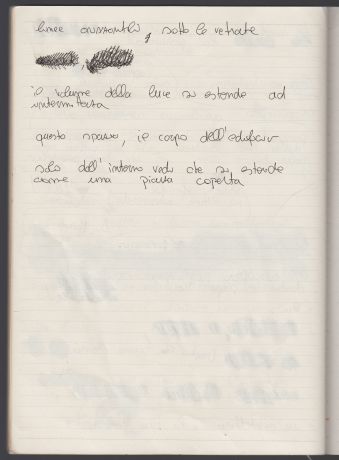 linee orizzontali, sotto le vetrate
il volume della luce si estende ad
intermittenza
questo spazio, il corpo dell'edificio
solo dall'interno vedi che si estende
come una piazza coperta